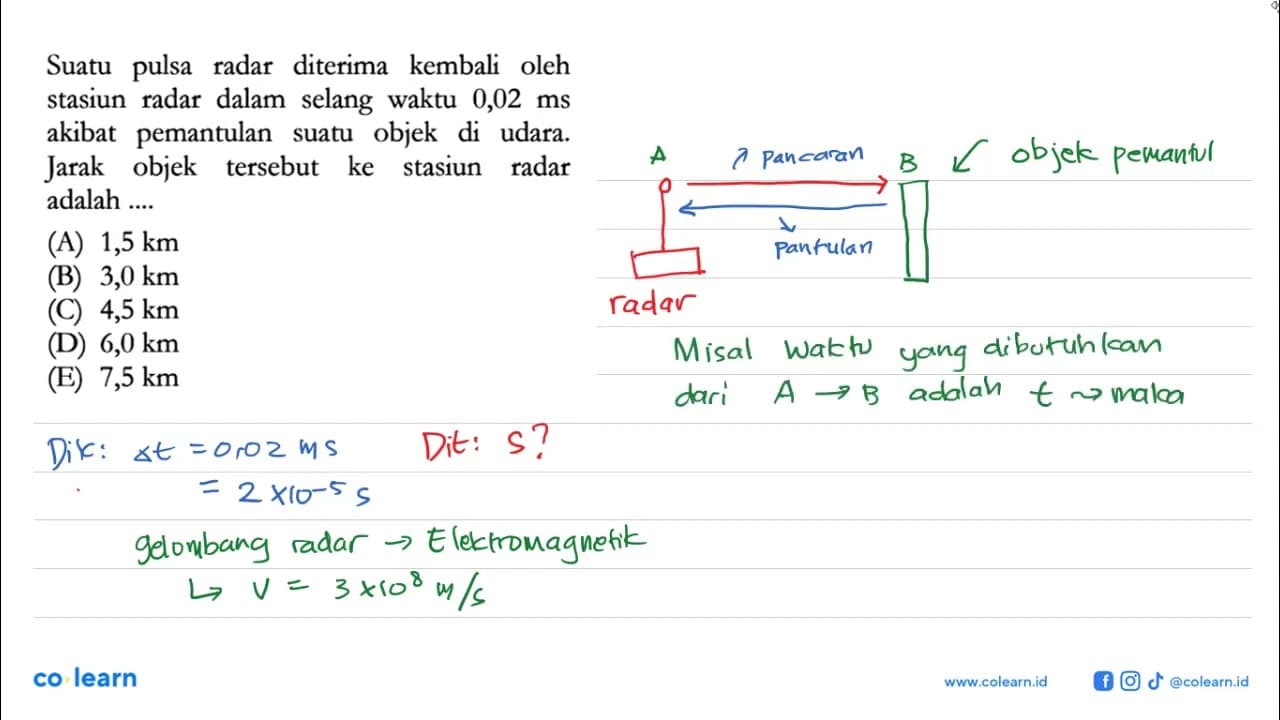 Suatu pulsa radar diterima kembali oleh
stasiun radar dalam selang waktu 0,02 ms
akibat pemantulan suatu objek di udara.
Jarak objek tersebut ke stasiun radar
adalah ....
(A) 1,5 km
(B) 3,0 km
(C) 4,5 km
(D) 6,0 km
(E) 7,5 km
A ↗ Pancaran B ↙ objek pemantul
↘
Pantulan
radar
Misal waktu yang dibutuhkan
dari A → B adalah t ⤳ maka
Dik: Δt = 0,02 ms Dit: s?
= 2 × 10⁻⁵ s
gelombang radar → Elektromagnetik
↳ v = 3 × 10⁸ m/s
co·learn
www.colearn.id @colearn.id